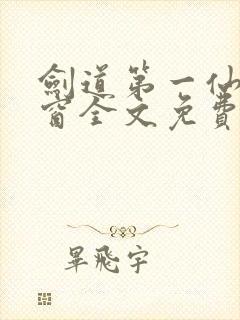 劍道第一仙
窗全文免費
畢飛宇